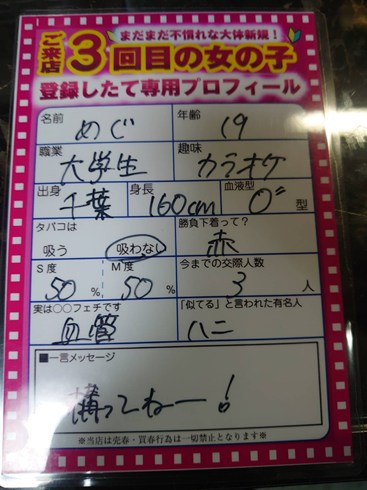 まだまだ不慣れな大体新鋭！
ご来店3回目の女の子
登録したて専用プロフィール
名前 めぐ 年齢 19
職業 大学生 趣味 カラオケ
出身 千葉 身長 160cm 血液型 O 型
タバコは 吸う 吸わない 勝負下着って？ 赤
S度 50% M度 50% 今までの交際人数 3人
実は〇〇フェチです 血管 「似てる」と言われた有名人 ハニ
■一言メッセージ
構ってねー！
※当店は売春・買春行為は一切禁止となります※